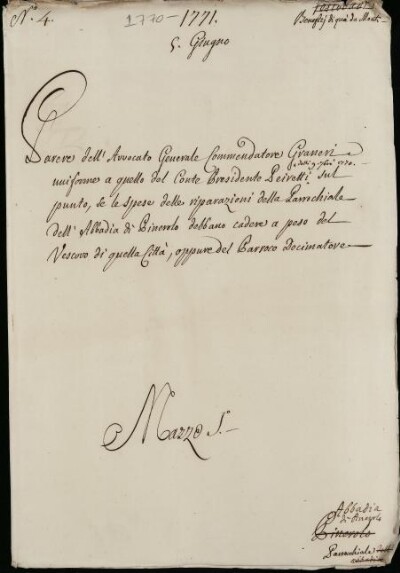 N.° 4.
1770-1771.
Benefizj di quà da Monti
5. Giugno
Parere dell'Avvocato Generale Commendatore Graneri
uniforme a quello del Conte Presidente Peiretti sul
punto, se le spese delle riparazioni della Parrochiale
dell'Abbadia di Pinerolo debbano cadere a peso del
Vescovo di quella Città, oppure del Parroco Decimatore
Mazzo 1.°
Abbadia
di Pinerolo
Pinerolo
Parrochiale